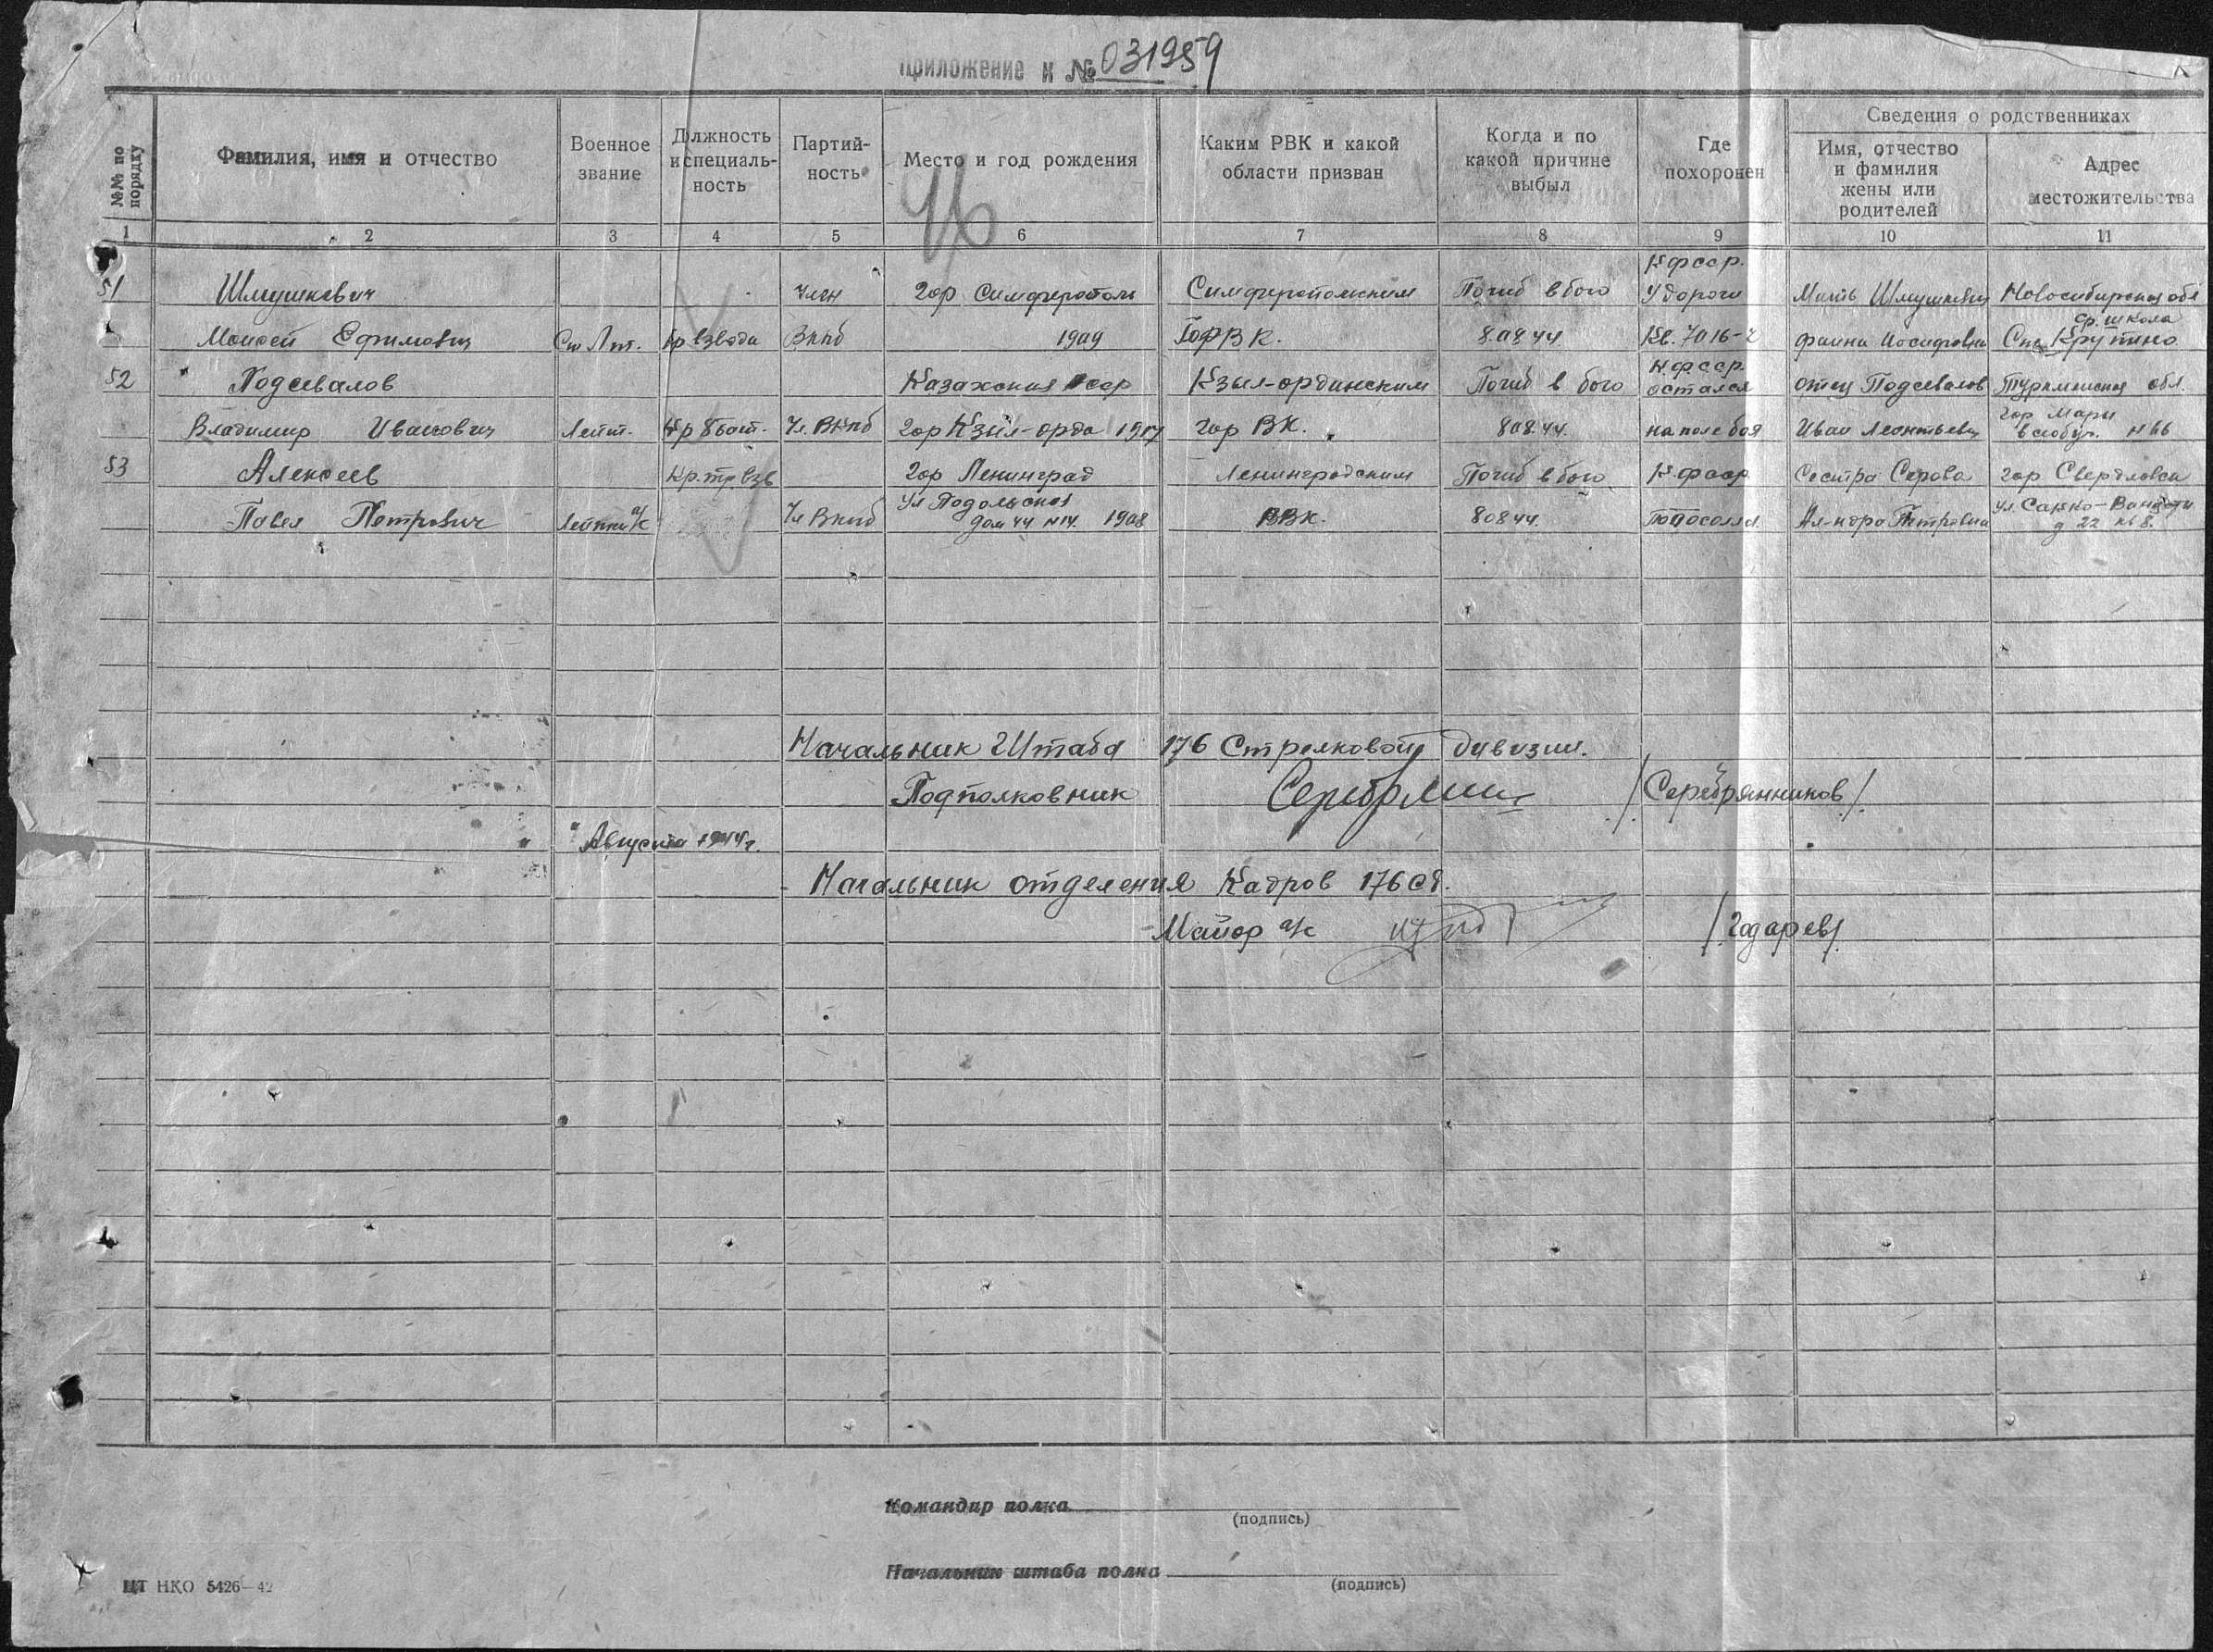 Приложение к № 031959
№№ по порядку
Фамилия, имя и отчество
Военное звание
Должность и специальность
Партийность
Место и год рождения
Каким РВК и какой области призван
Когда и по какой причине выбыл
Где похоронен
Сведения о родственниках
Имя, отчество и фамилия жены или родителей
Адрес местожительства
1 2 3 4 5 6 7 8 9 10 11
16
К.ф.сср.
51 Шмушкевич член гор Симферополь Симферопольским Погиб в бою у дороги Мать Шмушкевич Новосибирская обл
ср. школа
Моисей Ефимович Ст Лт. Кр взвода ВКПб 1909 ГорВК. 8.08.44 Кв. 7016-г Фаина Иосифовна Крутино
К.ф.сср.
52 Подсевалов Казахская сср Кзыл-ординским Погиб в бою остался отец Подсевалов Туркменская обл.
гор Мары
Владимир Иванович Лейт. Чл. ВКПб гор Кзыл-орда гор ВК. 8.08.44. на поле боя Иван Леонтьевич
53 Алексеев Кр. тр. взв гор Ленинград Ленинградским Погиб в бою К.ф.сср Сестра Серова гор Свердловск
Ул Подольская
Павел Петрович а/с Чл ВКПб дом 44 №14. 1908 РВК. 8 08 44. Ал-ндра Петровна ул. Сакко-Ванцети
д 22 кв 8.
Начальник Штаба 176 Стрелковой дивизии.
Подполковник /Серебрянников/.
" " Августа 1944 г.
Начальник отделения Кадров 176 сд.
Майор а/с /Годарев/.
Командир полка
(подпись)
Начальник штаба полка
(подпись)
ЦТ НКО 5426—42